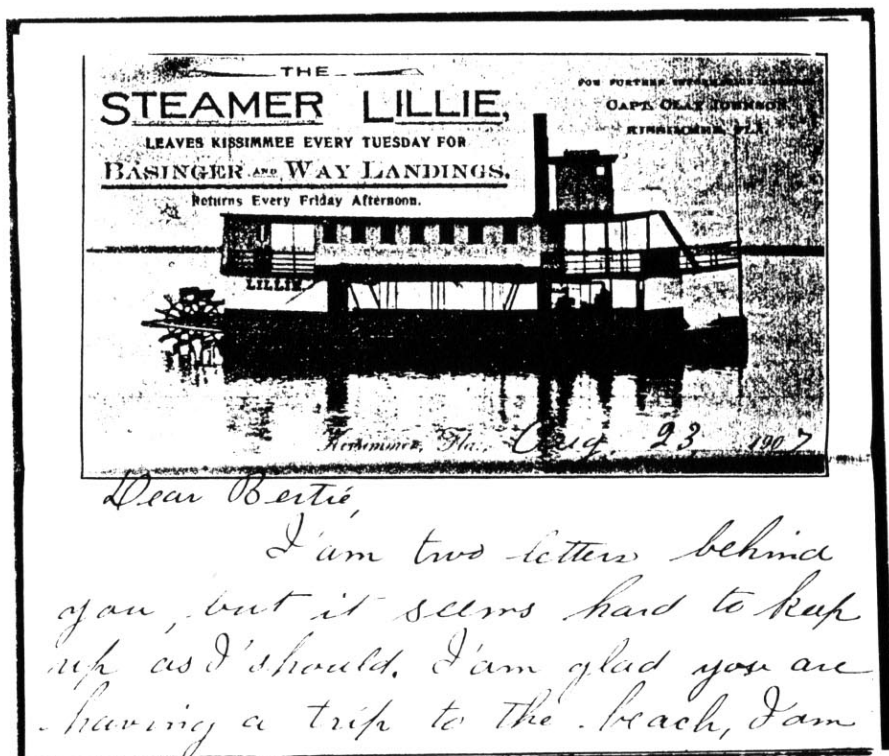 THE
STEAMER LILLIE,
LEAVES KISSIMMEE EVERY TUESDAY FOR
BASINGER AND WAY LANDINGS.
Returns Every Friday Afternoon.
FOR FURTHER INFORMATION ADDRESS
CAPT. CLAY JOHNSON,
KISSIMMEE, FLA.
LILLIE
Kissimmee, Fla., Aug. 23, 1907
Dear Bertie,
I'am two letters behind
you, but it seems hard to keep
up as I should. I'am glad you are
having a trip to the beach, I am